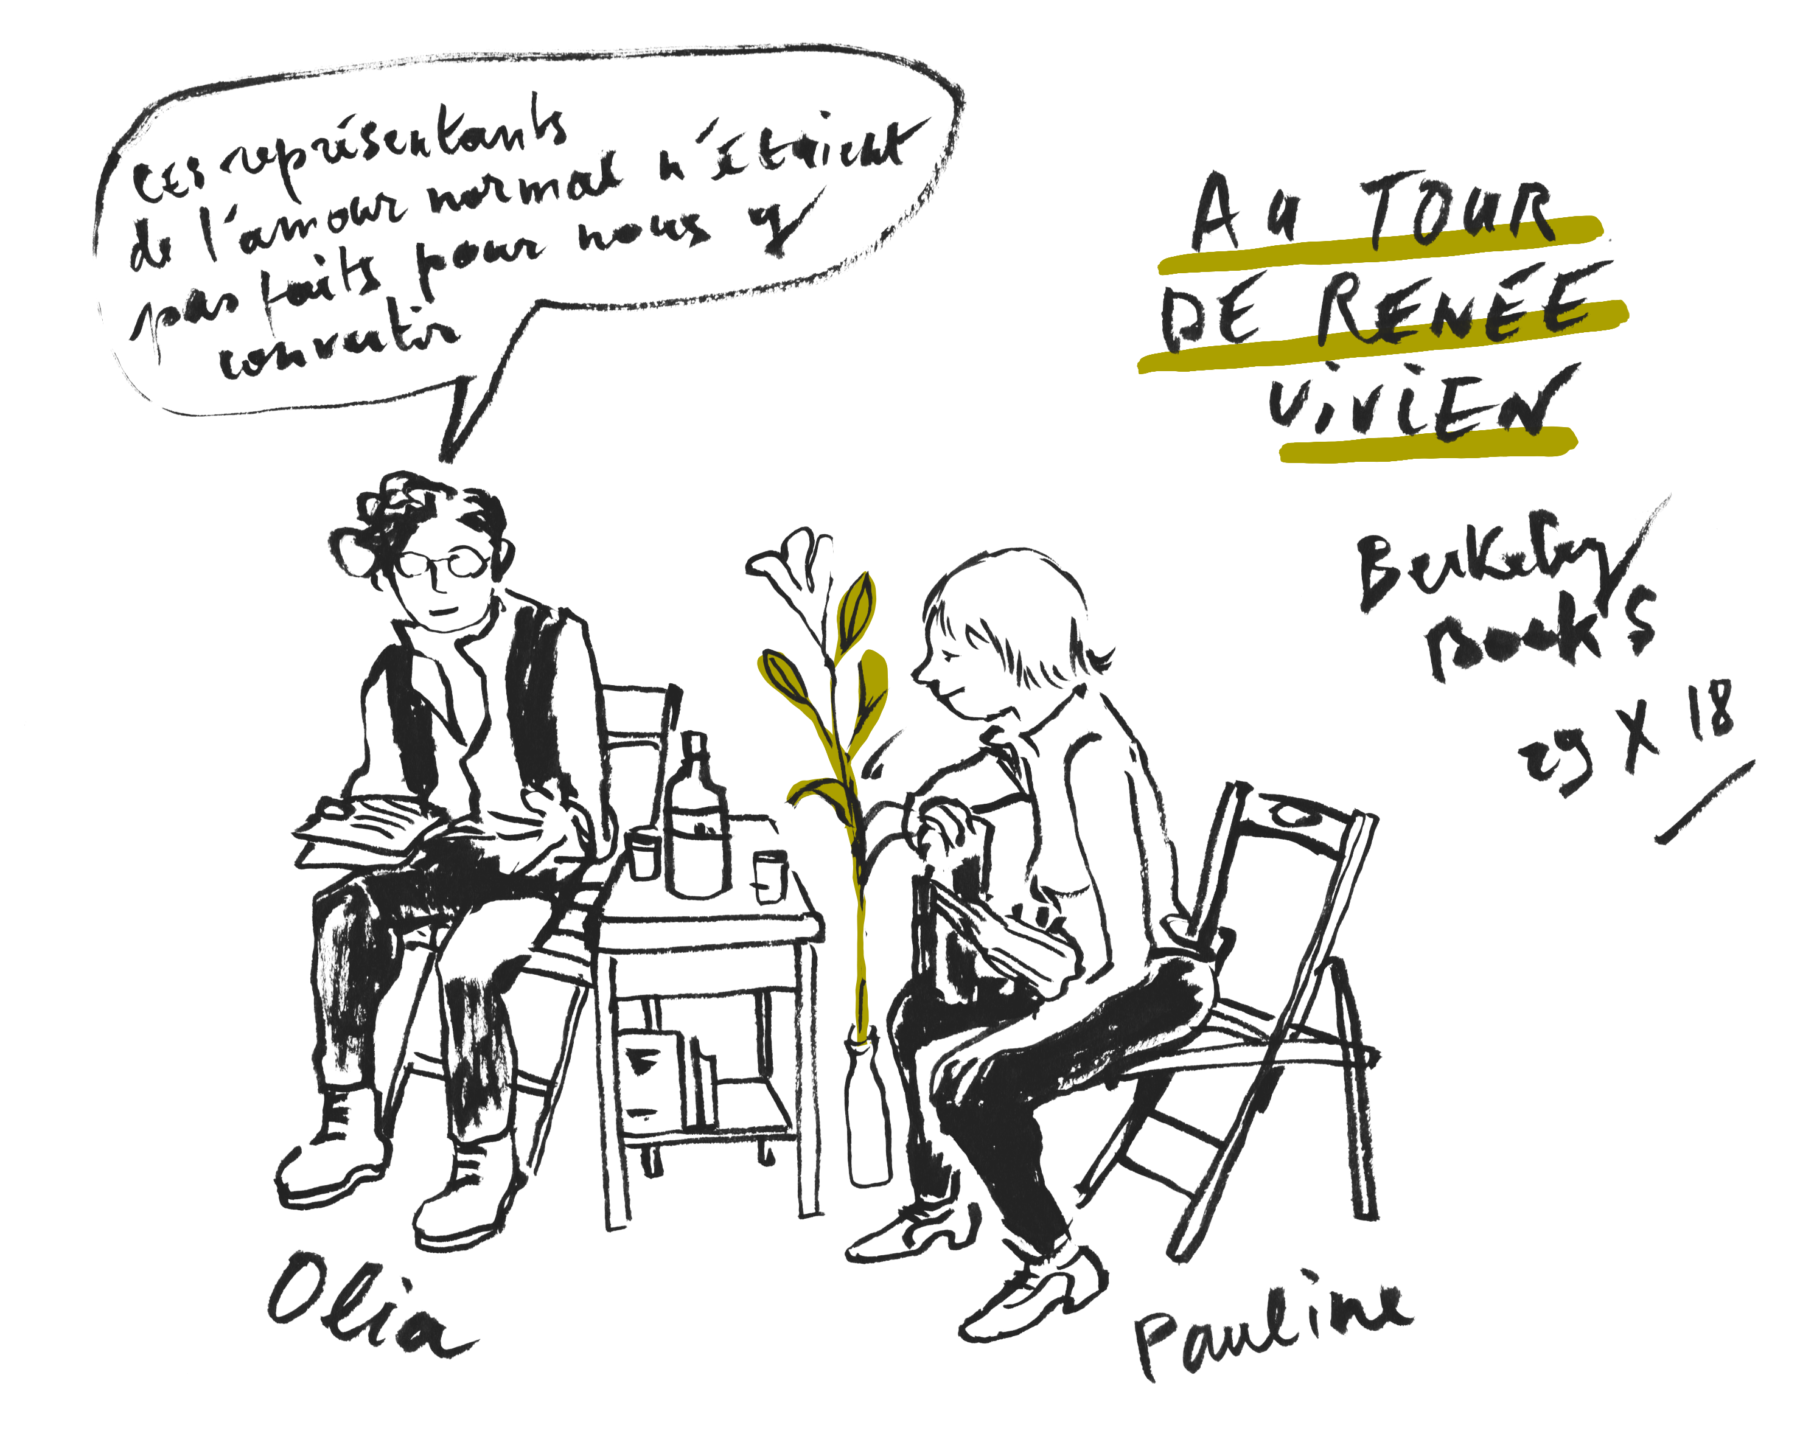 ces représentants
de l'amour normal n'étaient
pas faits pour nous y
convertir
AU TOUR
DE RENÉE
ViViEN
Berkeley
Books
29 X 18
Olia
Pauline